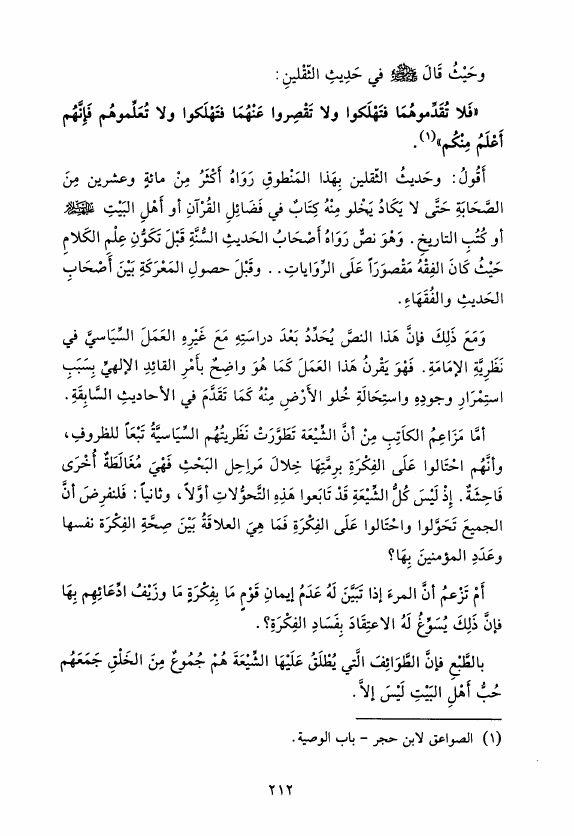 وحَيْثُ قَالَ ﷺ في حَدِيثِ الثَّقْلينِ:
«فَلا تُقَدِّموهُمَا فتَهْلَكوا ولا تَقْصِروا عَنْهُمَا فتَهْلَكوا ولا تُعَلِّموهُم فَإنَّهُم
أَعْلَمُ مِنْكُم»(١).
أَقُولُ: وحَديثُ الثّقلين بِهَذا المَنْطوقِ رَوَاهُ أَكْثَرُ مِنْ مائةٍ وعشرين مِنَ
الصَّحَابَةِ حَتَّى لا يَكَادُ يَخْلو مِنْهُ كِتَابٌ في فَضَائِلِ القُرْآنِ أو أَهْلِ البَيْتِ
أو كُتُبِ التاريخِ. وَهْوَ نصٌّ رَوَاهُ أَصْحَابُ الحَديثِ السُّنَّة قَبْلَ تَكَوُّنِ عِلْمِ الكَلامِ
حَيْثُ كَانَ الفِقْهُ مَقْصوَرَاً عَلَى الرِّوَاياتِ.. وقَبْلَ حصولِ المَعْرَكَةِ بَيْنَ أَصْحَابِ
الحَديثِ والفُقَهَاءِ.
وَمَعَ ذَلِكَ فإنَّ هَذا النصَّ يُحَدِّدُ بَعْدَ دراسَتِهِ مَعَ غَيْرِهِ العَمَلَ السِّيَاسيَّ في
نَظَرِيَّةِ الإمَامَةِ. فَهْوَ يَقْرِنُ هَذا العَمَلَ كَمَا هُوَ وَاضِحٌ بأَمْرِ القَائِدِ الإلهيِّ بِسَبَبِ
استِمْرَارِ وجودِهِ واستِحَالَةِ خُلو الأَرْضِ مِنْهُ كَمَا تَقَدَّمَ في الأحاديثِ السَّابِقَةِ.
أمَّا مَزَاعِمُ الكَاتِبِ مِنْ أنَّ الشِّيْعَة تَطَوَّرَتْ نَظَريتُهُم السِّيَاسيَّةُ تَبْعَاً للظروفِ،
وأنَّهُم احْتَالوا عَلَى الفِكْرَةِ بِرِمَّتِهَا خِلالَ مَراحِلِ البَحْثِ فَهْيَ مُغَالَطَةٌ أُخْرَى
فَاحِشَةٌ. إذْ لَيْسَ كُلُّ الشِّيْعَةِ قَدْ تَابَعوا هَذِهِ التَّحَوُّلاتِ أوَّلاً، وثانياً: فَلنفرِضَ أنَّ
الجميعَ تَحَوَّلوا واحْتَالوا عَلَى الفِكْرَةِ فَمَا هِيَ العلاقَةُ بَيْنَ صِحَّةِ الفِكْرَة نفسها
وعَدَدِ المؤمنينَ بِهَا؟
أَمْ تَزْعمُ أنَّ المرءَ إذا تَبَيَّنَ لَهُ عَدَمُ إيمانِ قَوْمٍ مَا بِفِكْرَةٍ مَا وزَيْفُ ادِّعَائِهِم بِهَا
فإنَّ ذَلِكَ يُسَوِّغُ لَهُ الاعتِقَادَ بِفَسَادِ الفِكْرَةِ؟.
بالطَّبْعِ فإنَّ الطَّوَائِفَ الَّتي يُطْلَقُ عَلَيْهَا الشِّيْعَةَ هُمْ جُموعٌ مِنَ الخَلْقِ جَمَعَهُم
حُبُّ أَهْلِ البَيْتِ لَيْسَ إلاَّ.
(١) الصواعق لابن حجر - باب الوصية.
٢١٢